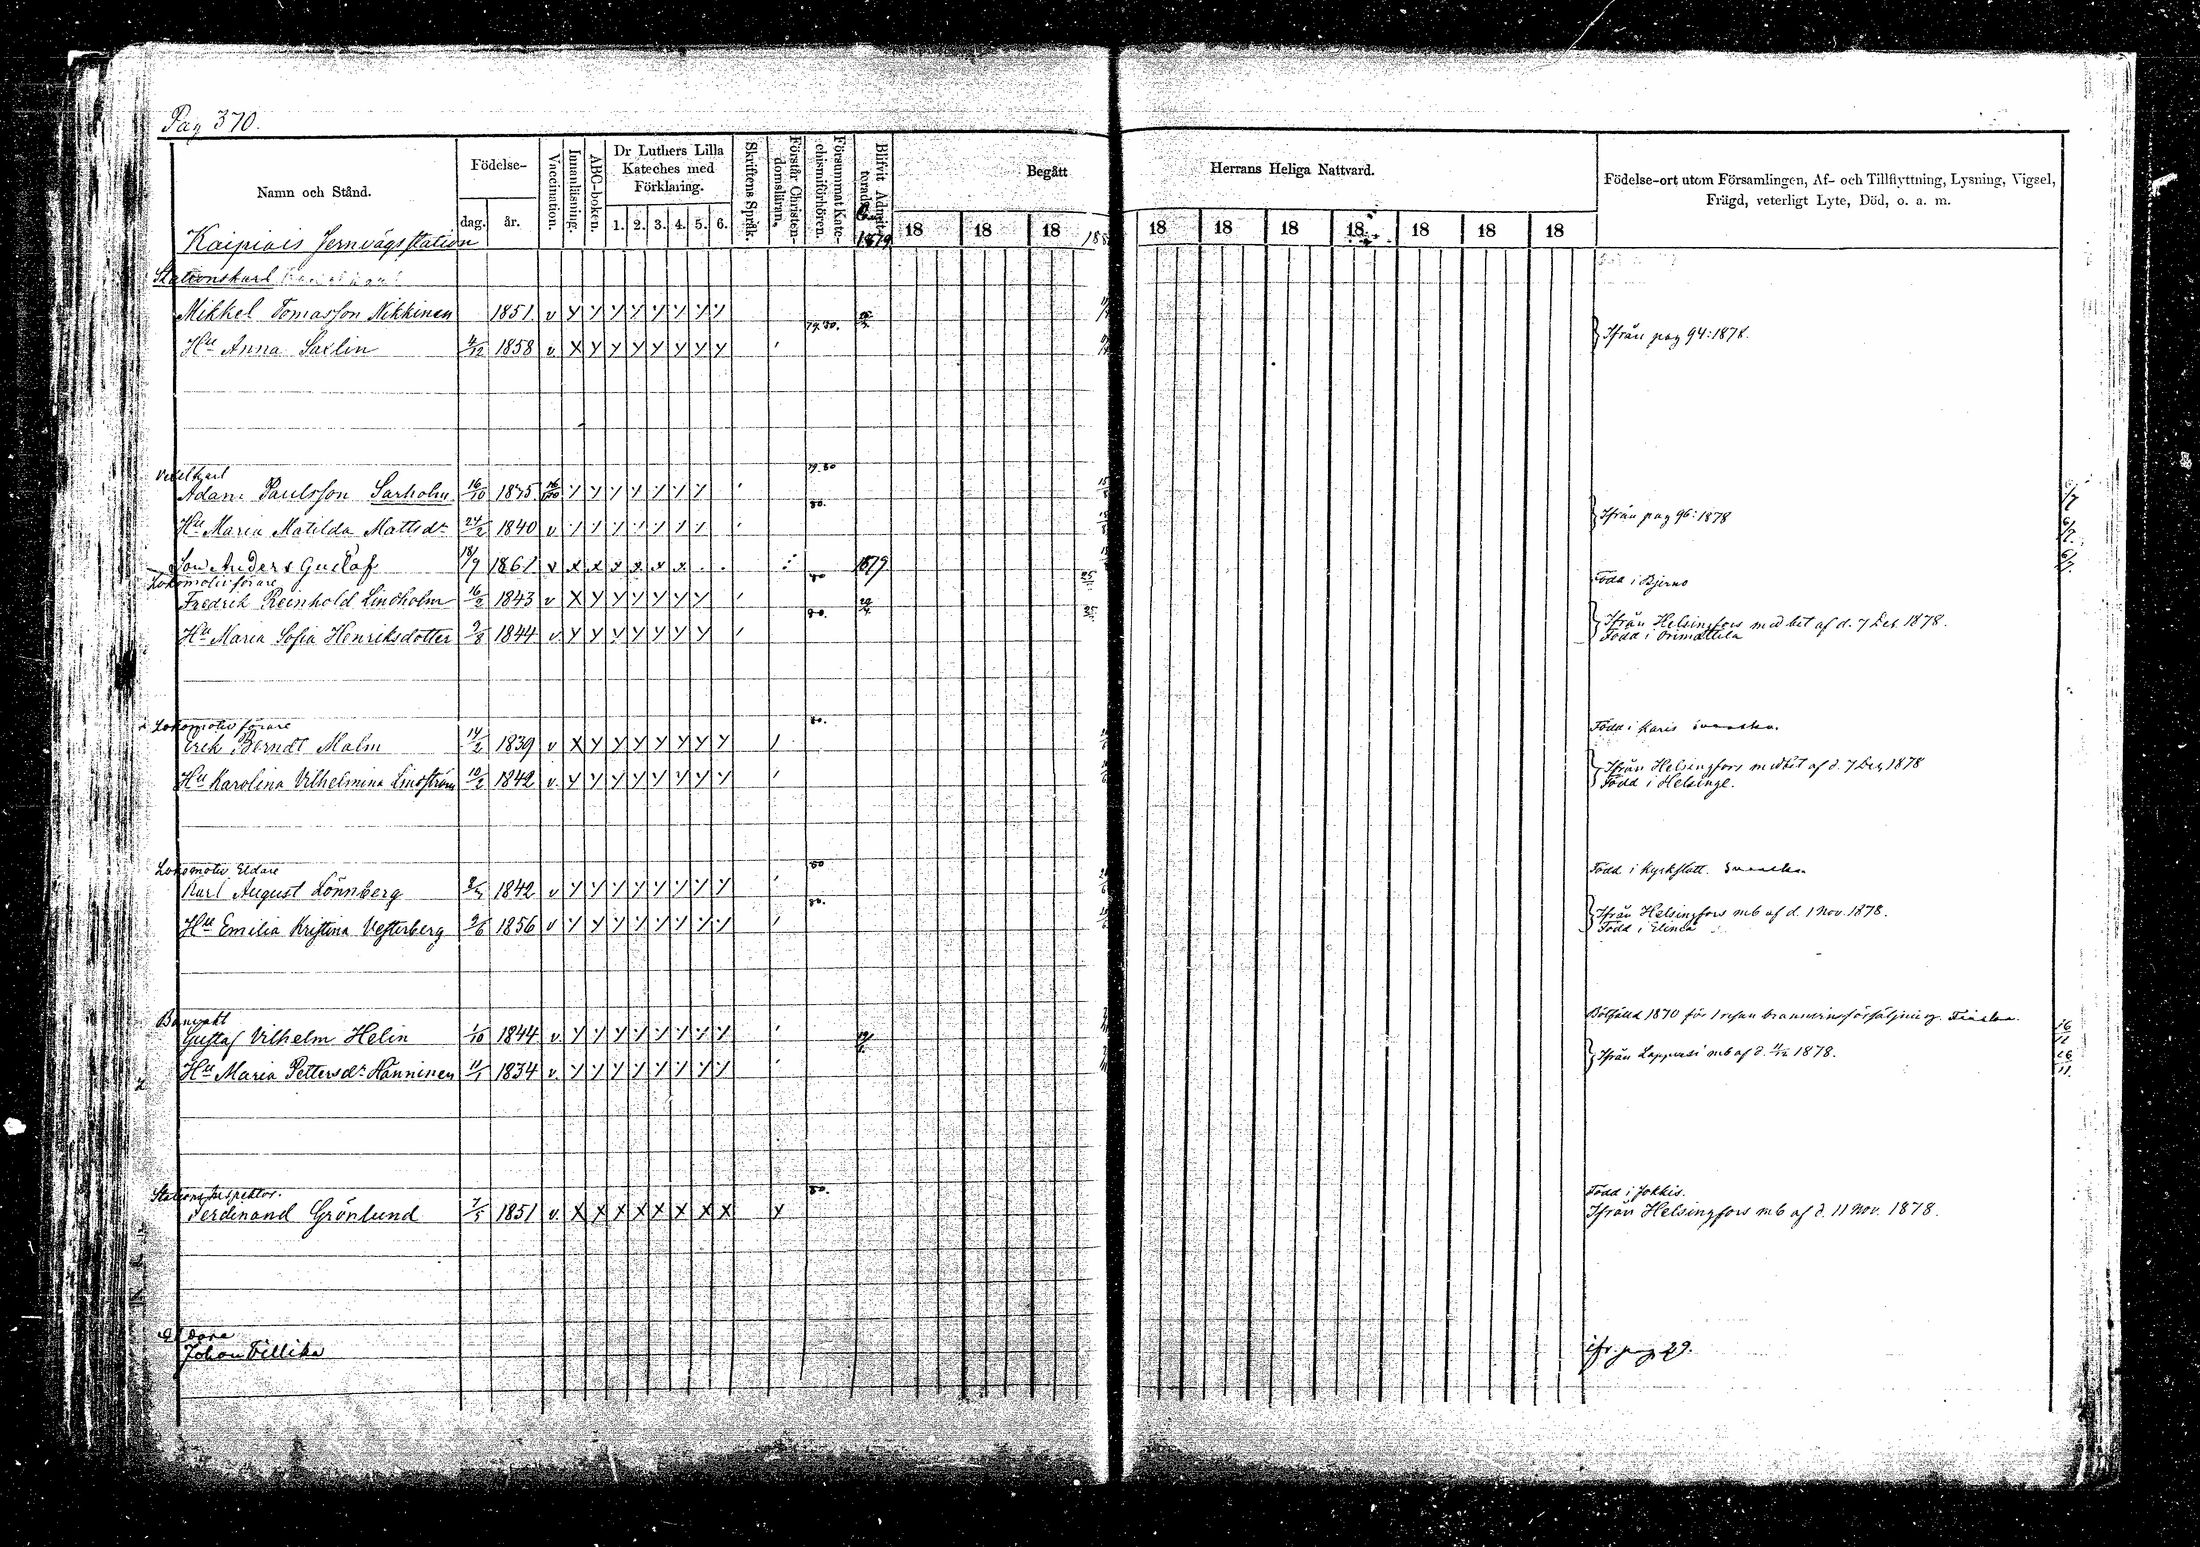 Pag 370.
Namn och Stånd.
Födelse-
dag.
år.
Vaccination.
Innanläsning.
ABC-boken.
Dr Luthers Lilla
Kateches med
Förklaring.
1. 2. 3. 4. 5. 6.
Skriftens Språk.
Förstår Christen-
domsläran.
Försummat Kate-
chismiförhören.
Blifvit Admit-
terad
1879
Begått
Herrans Heliga Nattvard.
18 18 18 18 18 18 18 18 18 18
Födelse-ort utom Församlingen, Af- och Tillflyttning, Lysning, Vigsel,
Frägd, veterligt Lyte, Död, o. a. m.
Kaipiais Jernvägsstation
Stationskarl
Mikkel Tomasson Nikkinen 1851 v y y y y y y y y
79.80.
Hu Anna Saxlin 4/12 1858 v. x y y y y y y y
Ifrån pag 94: 1878.
79.80
Adam Paulsson Sarholm 16/10 1875 y y y y y y y
80.
Hu Maria Matilda Mattsdr 24/2 1840 v y y y y y y y
Ifrån pag 96: 1878
Son Anders Gustaf 18/9 1861 v x x x x x x . . 1879
Lokomotivförare 80
Född i Bjerno
Fredrik Reinhold Lindholm 16/2 1843 v x y y y y y y
80.
Hu Maria Sofia Henriksdotter 9/8 1844 v. y y y y y y y
Ifrån Helsingfors med bet af d. 7 Dec. 1878.
Född i Orimattila
Lokomotivförare 80.
Född i Karis svenska.
Erik Berndt Malm 14/2 1839 v x y y y y y y y
Hu Karolina Vilhelmina Lindström 10/2 1842 v. y y y y y y y y
Ifrån Helsingfors med bet af d. 7 Dec 1878
Född i Helsinge.
Lokomotiv Eldare 80
Född i Kyrkslätt. svenska
Karl August Lönnberg 1842 v y y y y y y y y
80.
Hu Emilia Kristina Vesterberg 9/6 1856 v y y y y y y y y
Ifrån Helsingfors mb af d. 1 Nov. 1878.
Född i Elimä
Banvakt
Bötfälld 1870 för bränvinsförsäljning. Finska.
Gustaf Vilhelm Helin 1/10 1844 v. y y y y y y y y
Hu Maria Pettersdr Hänninen 11/1 1834 v. y y y y y y y y
Ifrån Lappvesi mb af d. 4/12 1878.
Stations Inspektor. 80.
Född i Jokkis.
Ferdinand Grönlund 7/5 1851 v. x x x x x x x x x
Ifrån Helsingfors mb af d. 11 Nov. 1878.
Eldare
Johan Villika
ifr. pag 29.